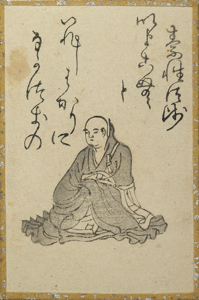 素性法師
いまこむ
と
いひしはかりに
なかつきの